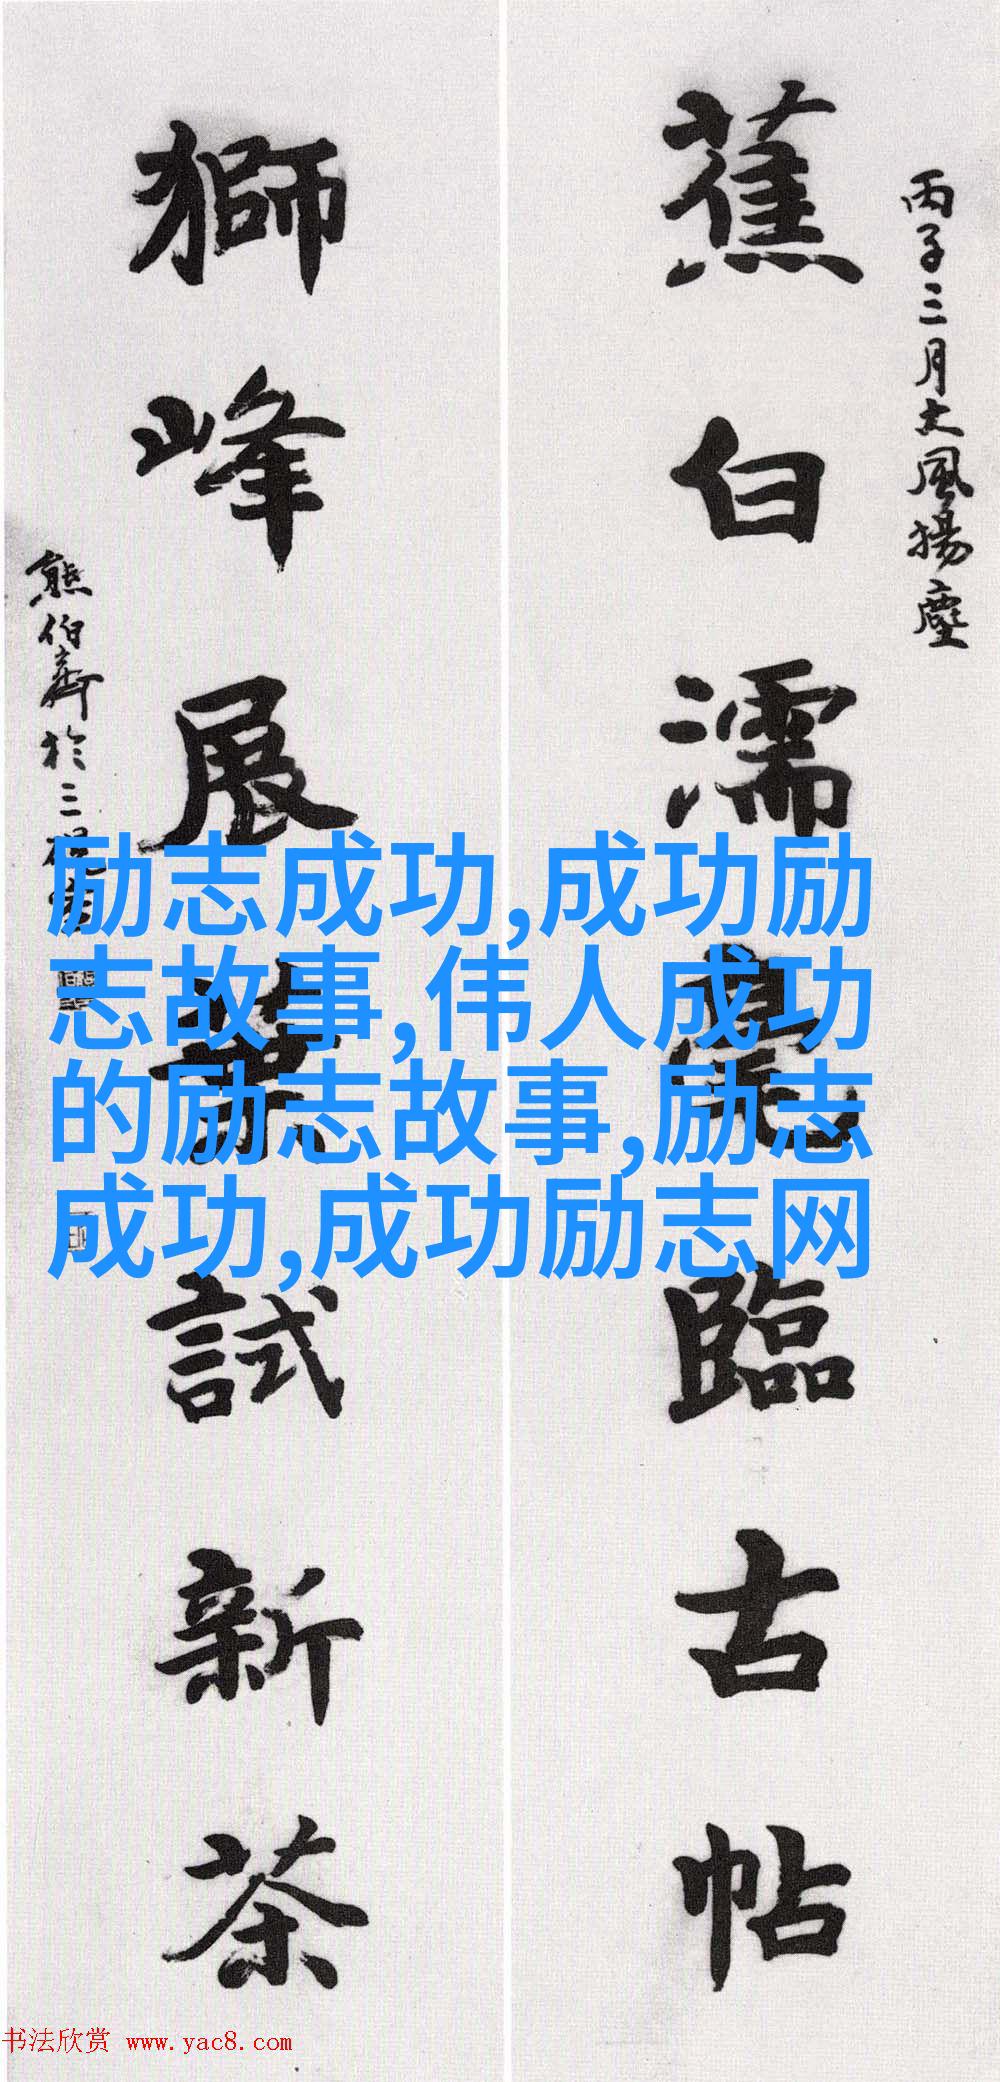 丙子三月大風揚塵
蕉白濡毫臨古帖
獅峰展葉試新茶
熊伯齊於三硯齋
励志成功,成功励
志故事,伟人成功
的励志故事,励志
成功,成功励志网
书法欣赏 www.yac8.com